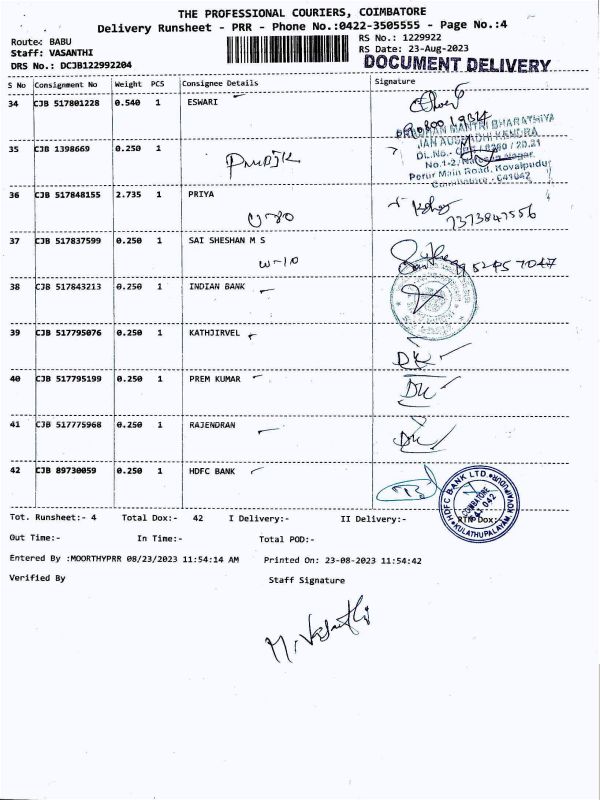 THE PROFESSIONAL COURIERS, COIMBATORE
Delivery Runsheet - PRR - Phone No.:0422-3505555 - Page No.:4
Route: BABU
RS No.: 1229922
Staff: VASANTHI
RS Date: 23-Aug-2023
DRS No.: DCJB122992204
DOCUMENT DELIVERY
S No Consignment No Weight PCS Consignee Details Signature
34 CJB 517801228 0.540 1 ESWARI
MANTRI BHARATHIYA
35 CJB 1398669 0.250 1
JAN AUSHADHI KENDRA
No.1-2,
Perur Main Road, Kovaipudur
Coimbatore - 641042
36 CJB 517848155 2.735 1 PRIYA
7373847556
37 CJB 517837599 0.250 1 SAI SHESHAN M S
W-10
38 CJB 517843213 0.250 1 INDIAN BANK
39 CJB 517795076 0.250 1 KATHJIRVEL
40 CJB 517795199 0.250 1 PREM KUMAR
41 CJB 517775968 0.250 1 RAJENDRAN
42 CJB 89730059 0.250 1 HDFC BANK
HDFC BANK LTD. KOVAIPUDUR
COIMBATORE
641 042
KULATHUPALAYAM
Tot. Runsheet:- 4 Total Dox:- 42 I Delivery:- II Delivery:- RTN Dox:-
Out Time:- In Time:- Total POD:-
Entered By :MOORTHYPRR 08/23/2023 11:54:14 AM Printed On: 23-08-2023 11:54:42
Verified By Staff Signature
M. Vasanthi